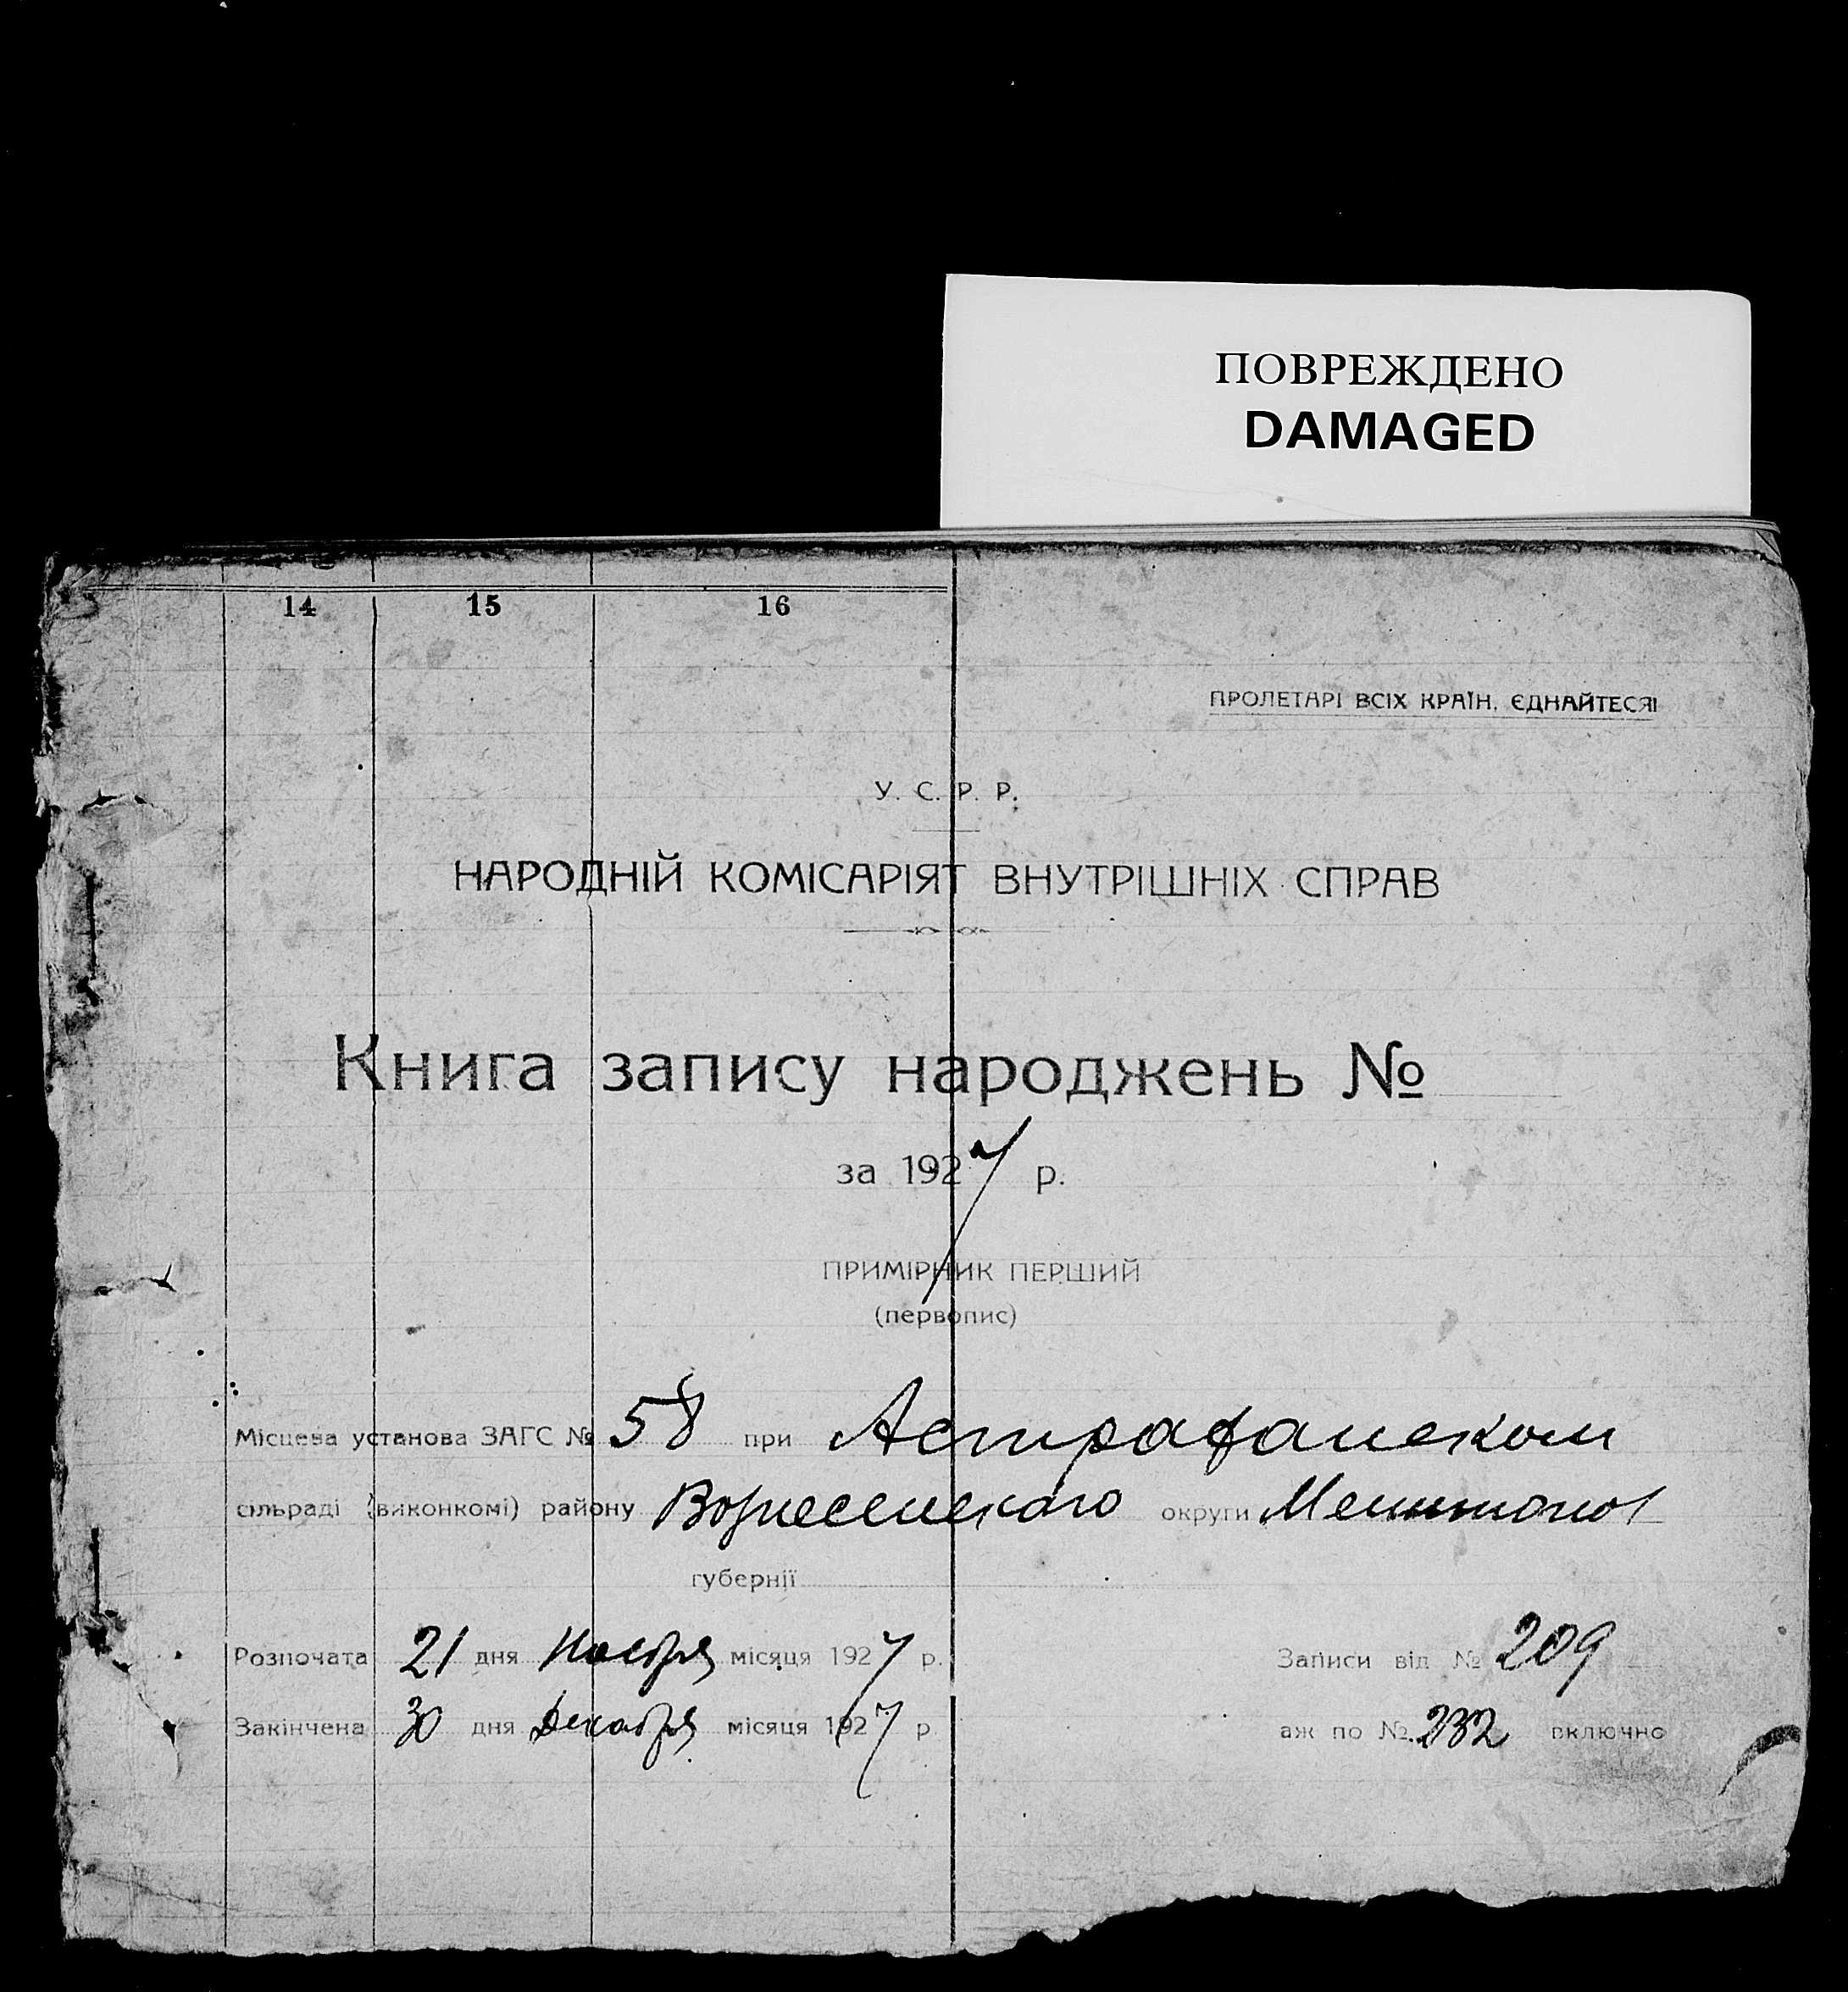 ПОВРЕЖДЕНО
DAMAGED
14 15 16
ПРОЛЕТАРІ ВСІХ КРАЇН, ЄДНАЙТЕСЯ!
У. С. Р. Р.
НАРОДНІЙ КОМІСАРІЯТ ВНУТРІШНІХ СПРАВ
Книга запису народжень №
за 1927 р.
ПРИМІРНИК ПЕРШИЙ
(первопис)
Місцева установа ЗАГС № 58 при Астраханском
сільраді (виконкомі) району Вознесенского округи
губернії
Розпочата 21 дня Ноября місяця 1927 р. Записи від № 209
Закінчена 30 дня Декабря місяця 1927 р. аж по № 232 включно